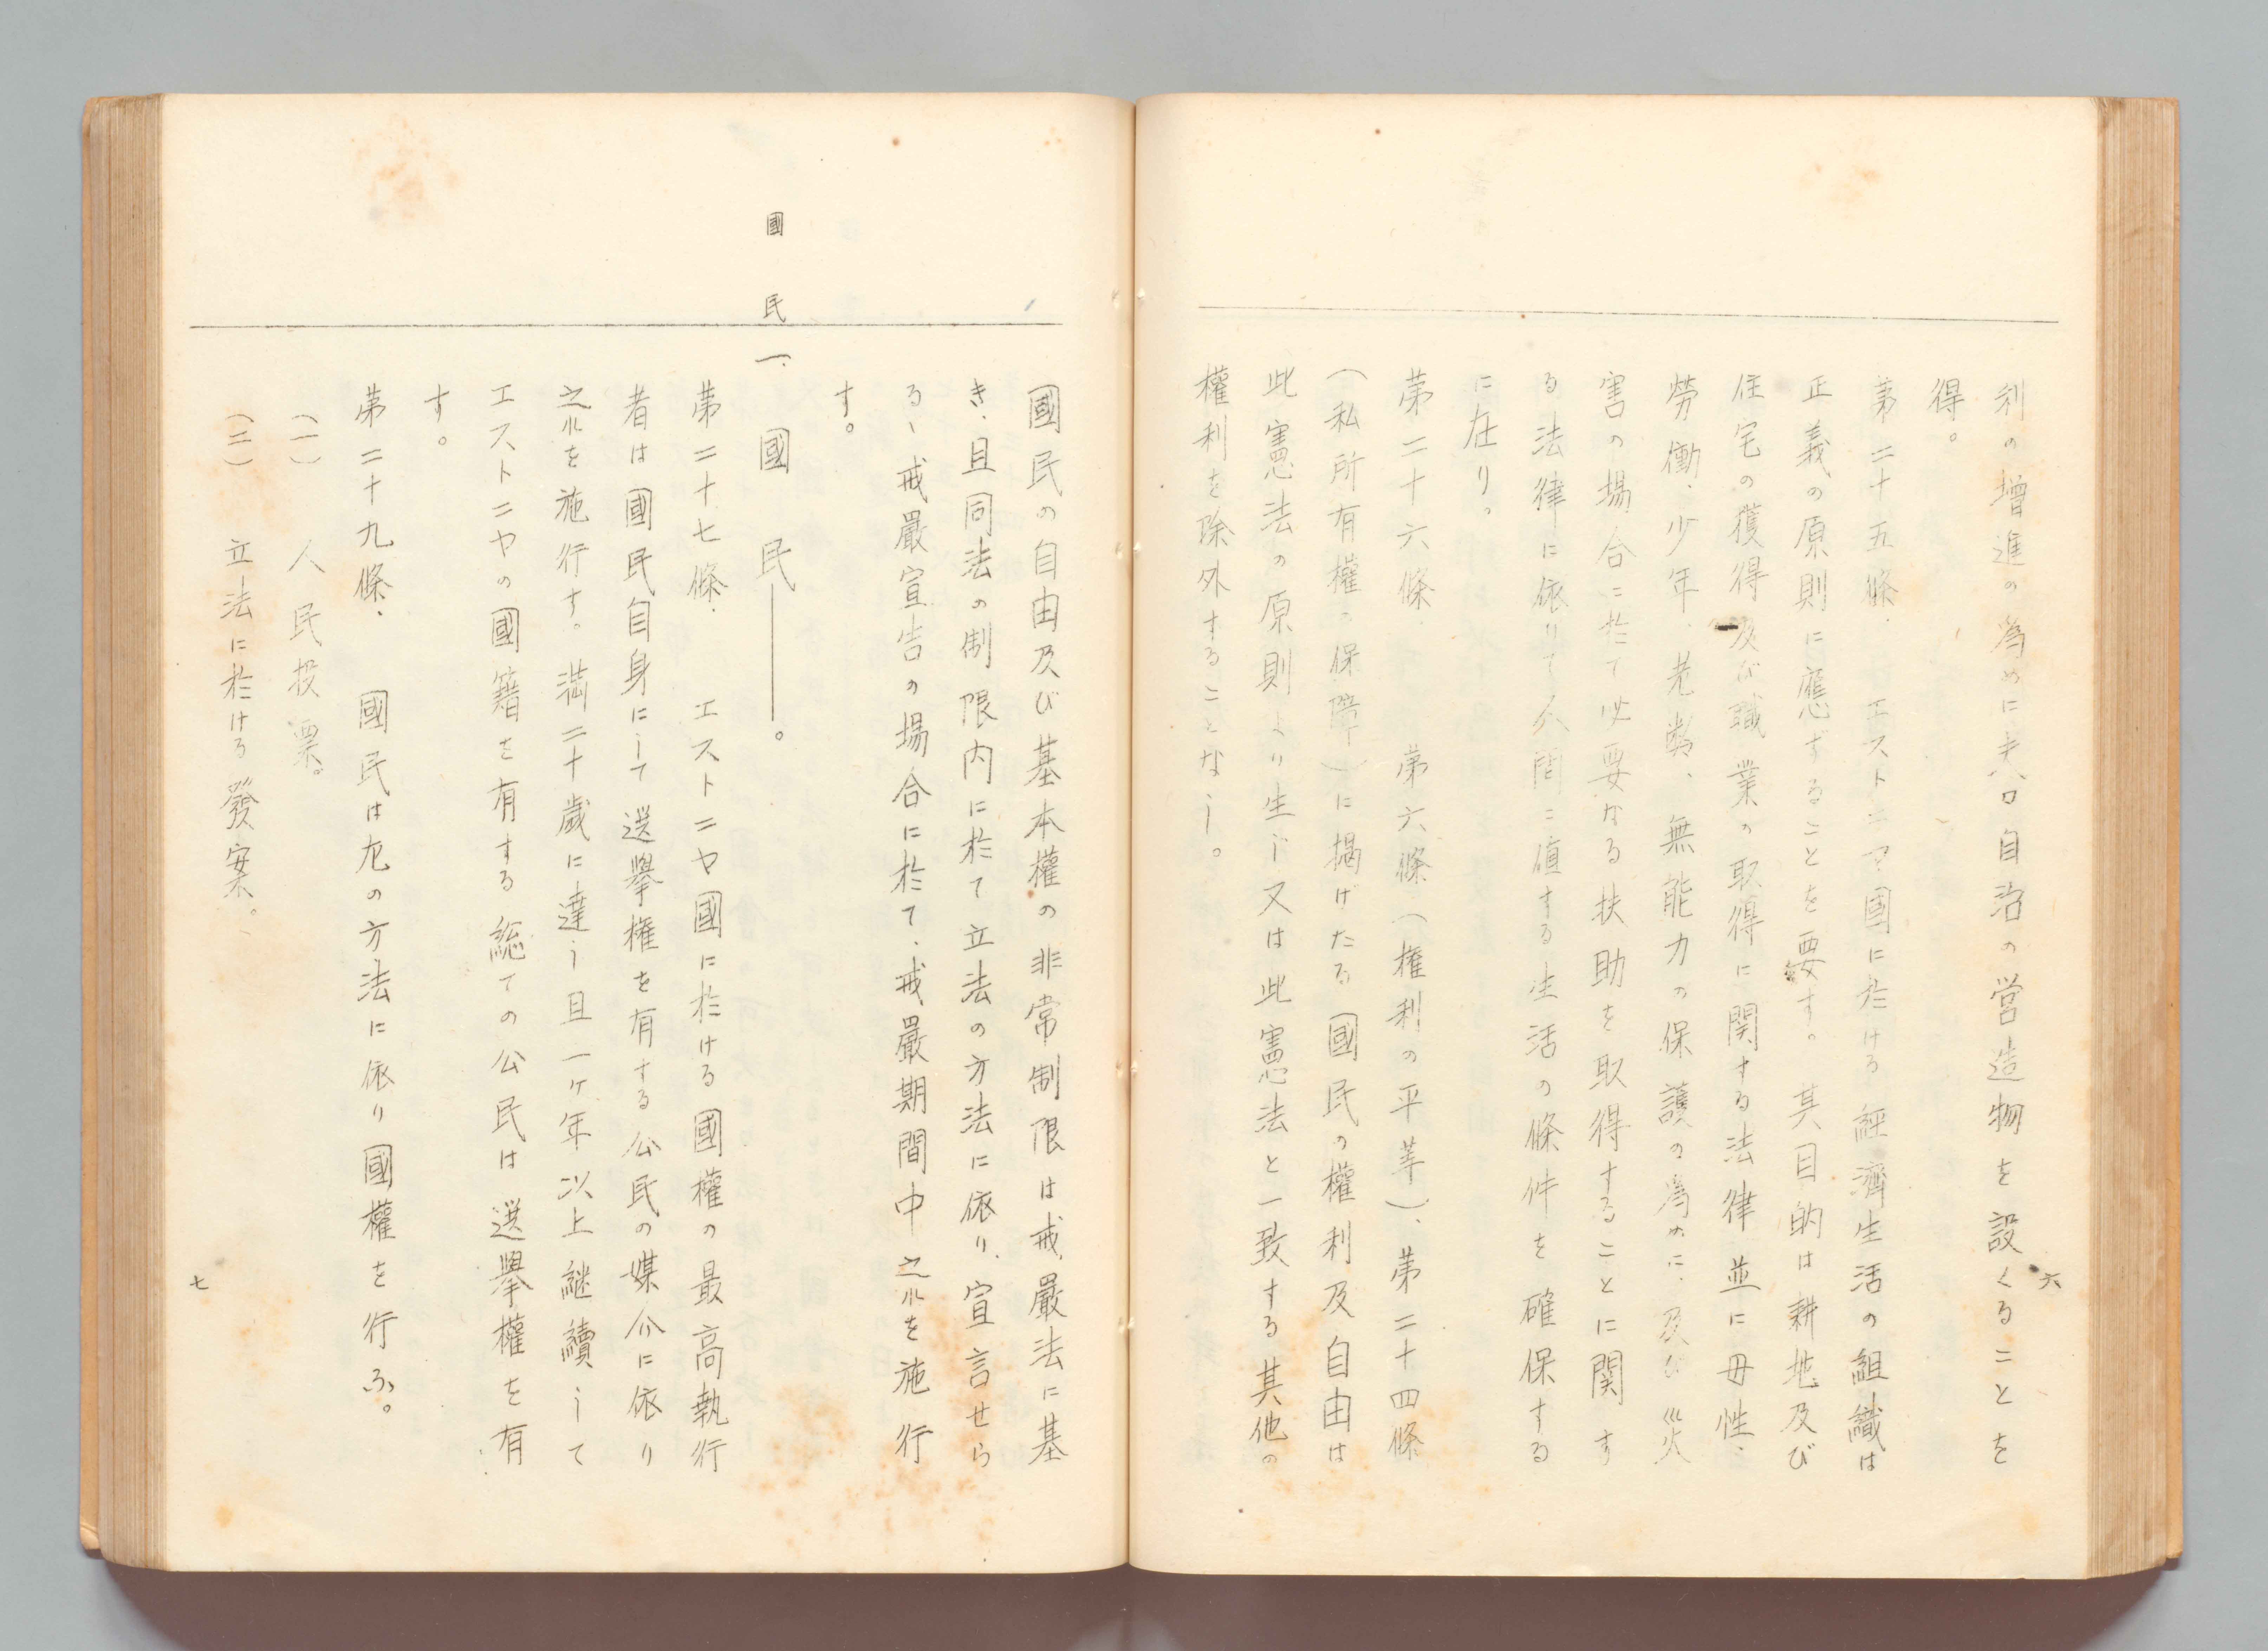 利の増進の為めに夫々自治の営造物を設くることを
得。
第二十五條、エストニヤ國に於ける經濟生活の組織は
正義の原則に應ずることを要す。其目的は耕地及び
住宅の獲得及び職業の取得に関する法律並に母性、
勞働、少年、老衰、無能力の保護の為めに、及び災
害の場合に於て必要なる扶助を取得することに関す
る法律に依りて人間に値する生活の條件を確保する
に在り。
第二十六條、第六條（権利の平等）、第二十四條
（私所有權の保障）に掲げたる國民の權利及自由は
此憲法の原則より生じ又は此憲法と一致する其他の
權利を除外することなし。
六
國民の自由及び基本權の非常制限は戒嚴法に基
き、且同法の制限内に於て立法の方法に依り、宣言せら
るゝ戒嚴宣告の場合に於て、戒嚴期間中之れを施行
す。
國民
一、國民――。
第二十七條、エストニヤ國に於ける國權の最高執行
者は國民自身にして選擧権を有する公民の媒介に依り
之れを施行す。満二十歳に達し且一ヶ年以上継續して
エストニヤの國籍を有する総ての公民は選擧權を有
す。
第二十九條、國民は左の方法に依り國權を行ふ。
（一）人民投票。
（二）立法に於ける發案。
七